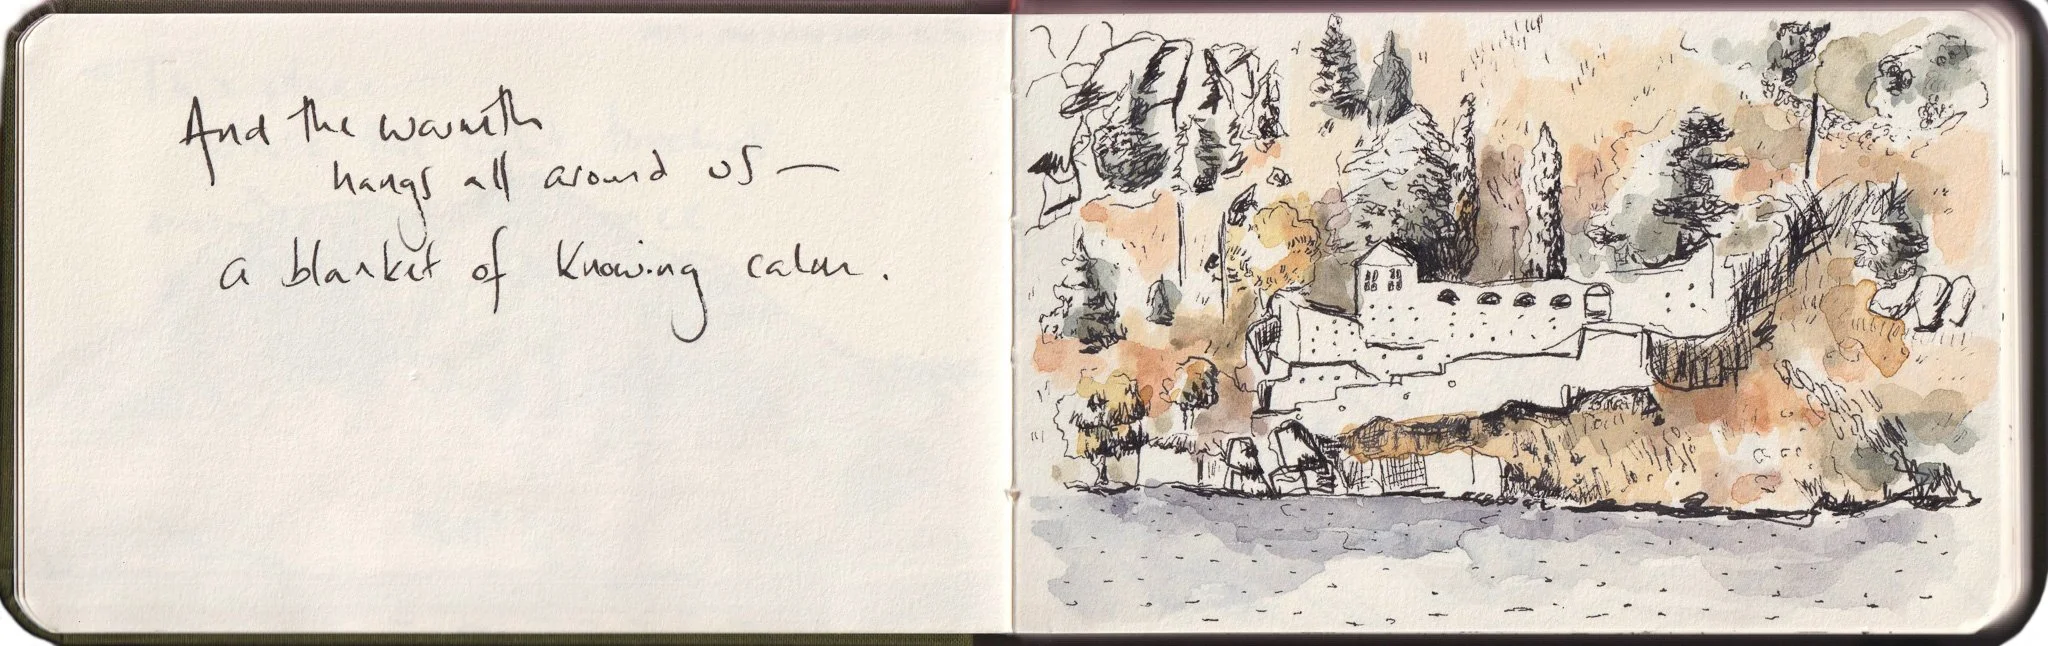 And the warmth
hangs all around us —
a blanket of knowing calm.